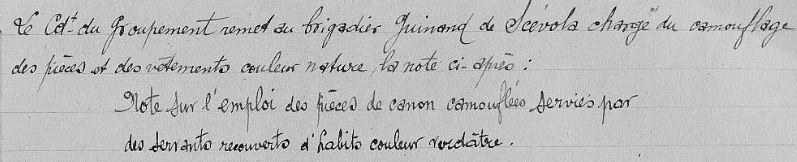 Le Cdt du Groupement remet au brigadier Guinand de Scévola chargé du camouflage
des pièces et des vêtements couleur nature, la note ci-après :
Note sur l'emploi des pièces de canon camouflées servies par
des servants recouverts d'habits couleur verdâtre.